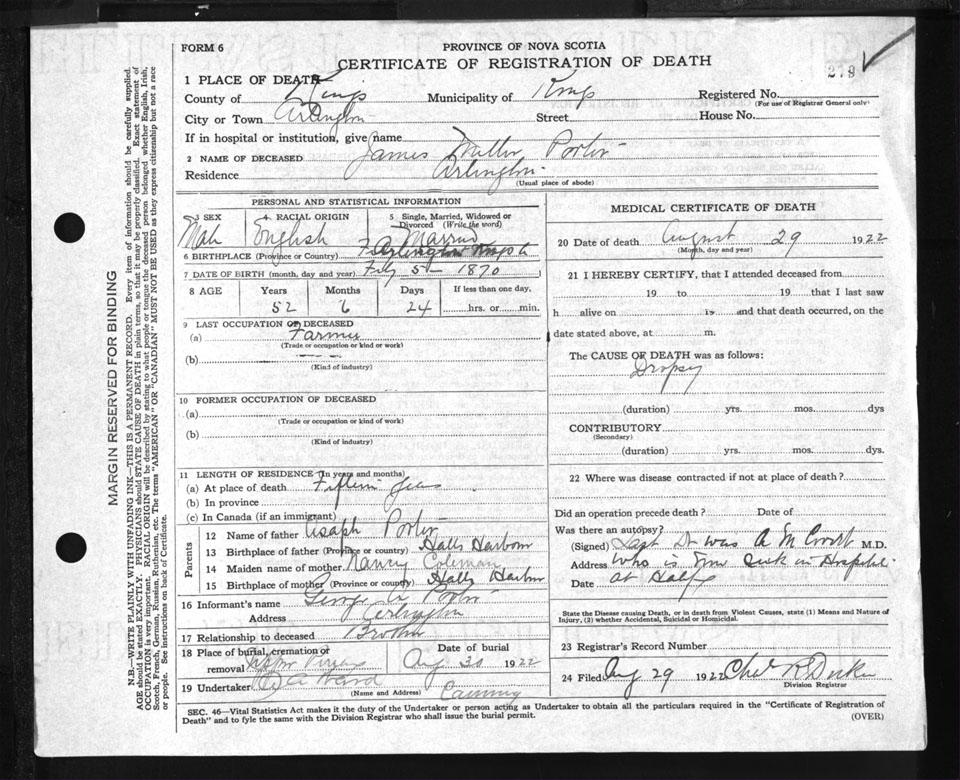 FORM 6
PROVINCE OF NOVA SCOTIA
CERTIFICATE OF REGISTRATION OF DEATH
279
1 PLACE OF DEATH
County of Kings Municipality of Kings Registered No.
(For use of Registrar General only)
City or Town Arlington Street House No.
If in hospital or institution, give name
2 NAME OF DECEASED James Miller Porter
Residence Arlington
(Usual place of abode)
MARGIN RESERVED FOR BINDING
N.B.—WRITE PLAINLY WITH UNFADING INK—THIS IS A PERMANENT RECORD. Every item of information should be carefully supplied.
AGE should be stated EXACTLY. PHYSICIANS should STATE CAUSE OF DEATH in plain terms, so that it may be properly classified. Exact statement of
OCCUPATION is very important. RACIAL ORIGIN will be described by stating to what people or tongue the deceased person belonged whether English, Irish,
Scotch, French, German, Russian, Ruthenian, etc. The terms "AMERICAN" OR "CANADIAN" MUST NOT BE USED as they express citizenship but not a race
or people. See instructions on back of Certificate.
PERSONAL AND STATISTICAL INFORMATION
3 SEX 4 RACIAL ORIGIN 5 Single, Married, Widowed or
Divorced (Write the word)
Male English Married
6 BIRTHPLACE (Province or Country) Arlington Kings Co
7 DATE OF BIRTH (month, day and year) Feby 5 1870
8 AGE Years Months Days If less than one day,
52 6 24 hrs. or min.
9 LAST OCCUPATION OF DECEASED
(a) Farmer
(Trade or occupation or kind or work)
(b)
(Kind of industry)
10 FORMER OCCUPATION OF DECEASED
(a)
(Trade or occupation or kind of work)
(b)
(Kind of industry)
11 LENGTH OF RESIDENCE (In years and months)
(a) At place of death Fifteen years
(b) In province
(c) In Canada (if an immigrant)
Parents
12 Name of father Asaph Porter
13 Birthplace of father (Province or country) Halls Harbour
14 Maiden name of mother Nancy Coleman
15 Birthplace of mother (Province or country) Halls Harbor
16 Informant's name George A Porter
Address Arlington
17 Relationship to deceased Brother
18 Place of burial, cremation or Date of burial
removal Aug 30 1922
19 Undertaker Ward Canning
(Name and Address)
MEDICAL CERTIFICATE OF DEATH
20 Date of death August 29 1922
(Month, day and year)
21 I HEREBY CERTIFY, that I attended deceased from
19 to 19 that I last saw
h alive on 19 and that death occurred, on the
date stated above, at m.
The CAUSE OF DEATH was as follows:
Dropsy
(duration) yrs. mos. dys
CONTRIBUTORY
(Secondary)
(duration) yrs. mos. dys
22 Where was disease contracted if not at place of death?
Did an operation precede death? Date of
Was there an autopsy?
(Signed) Last Dr was A M M.D.
Address who is now sick in Hospital
Date at Halfx
State the Disease causing Death, or in death from Violent Causes, state (1) Means and Nature of
Injury, (2) whether Accidental, Suicidal or Homicidal.
23 Registrar's Record Number
24 Filed Aug 29 1922
Division Registrar
SEC. 46—Vital Statistics Act makes it the duty of the Undertaker or person acting as Undertaker to obtain all the particulars required in the "Certificate of Registration of
Death" and to fyle the same with the Division Registrar who shall issue the burial permit. (OVER)